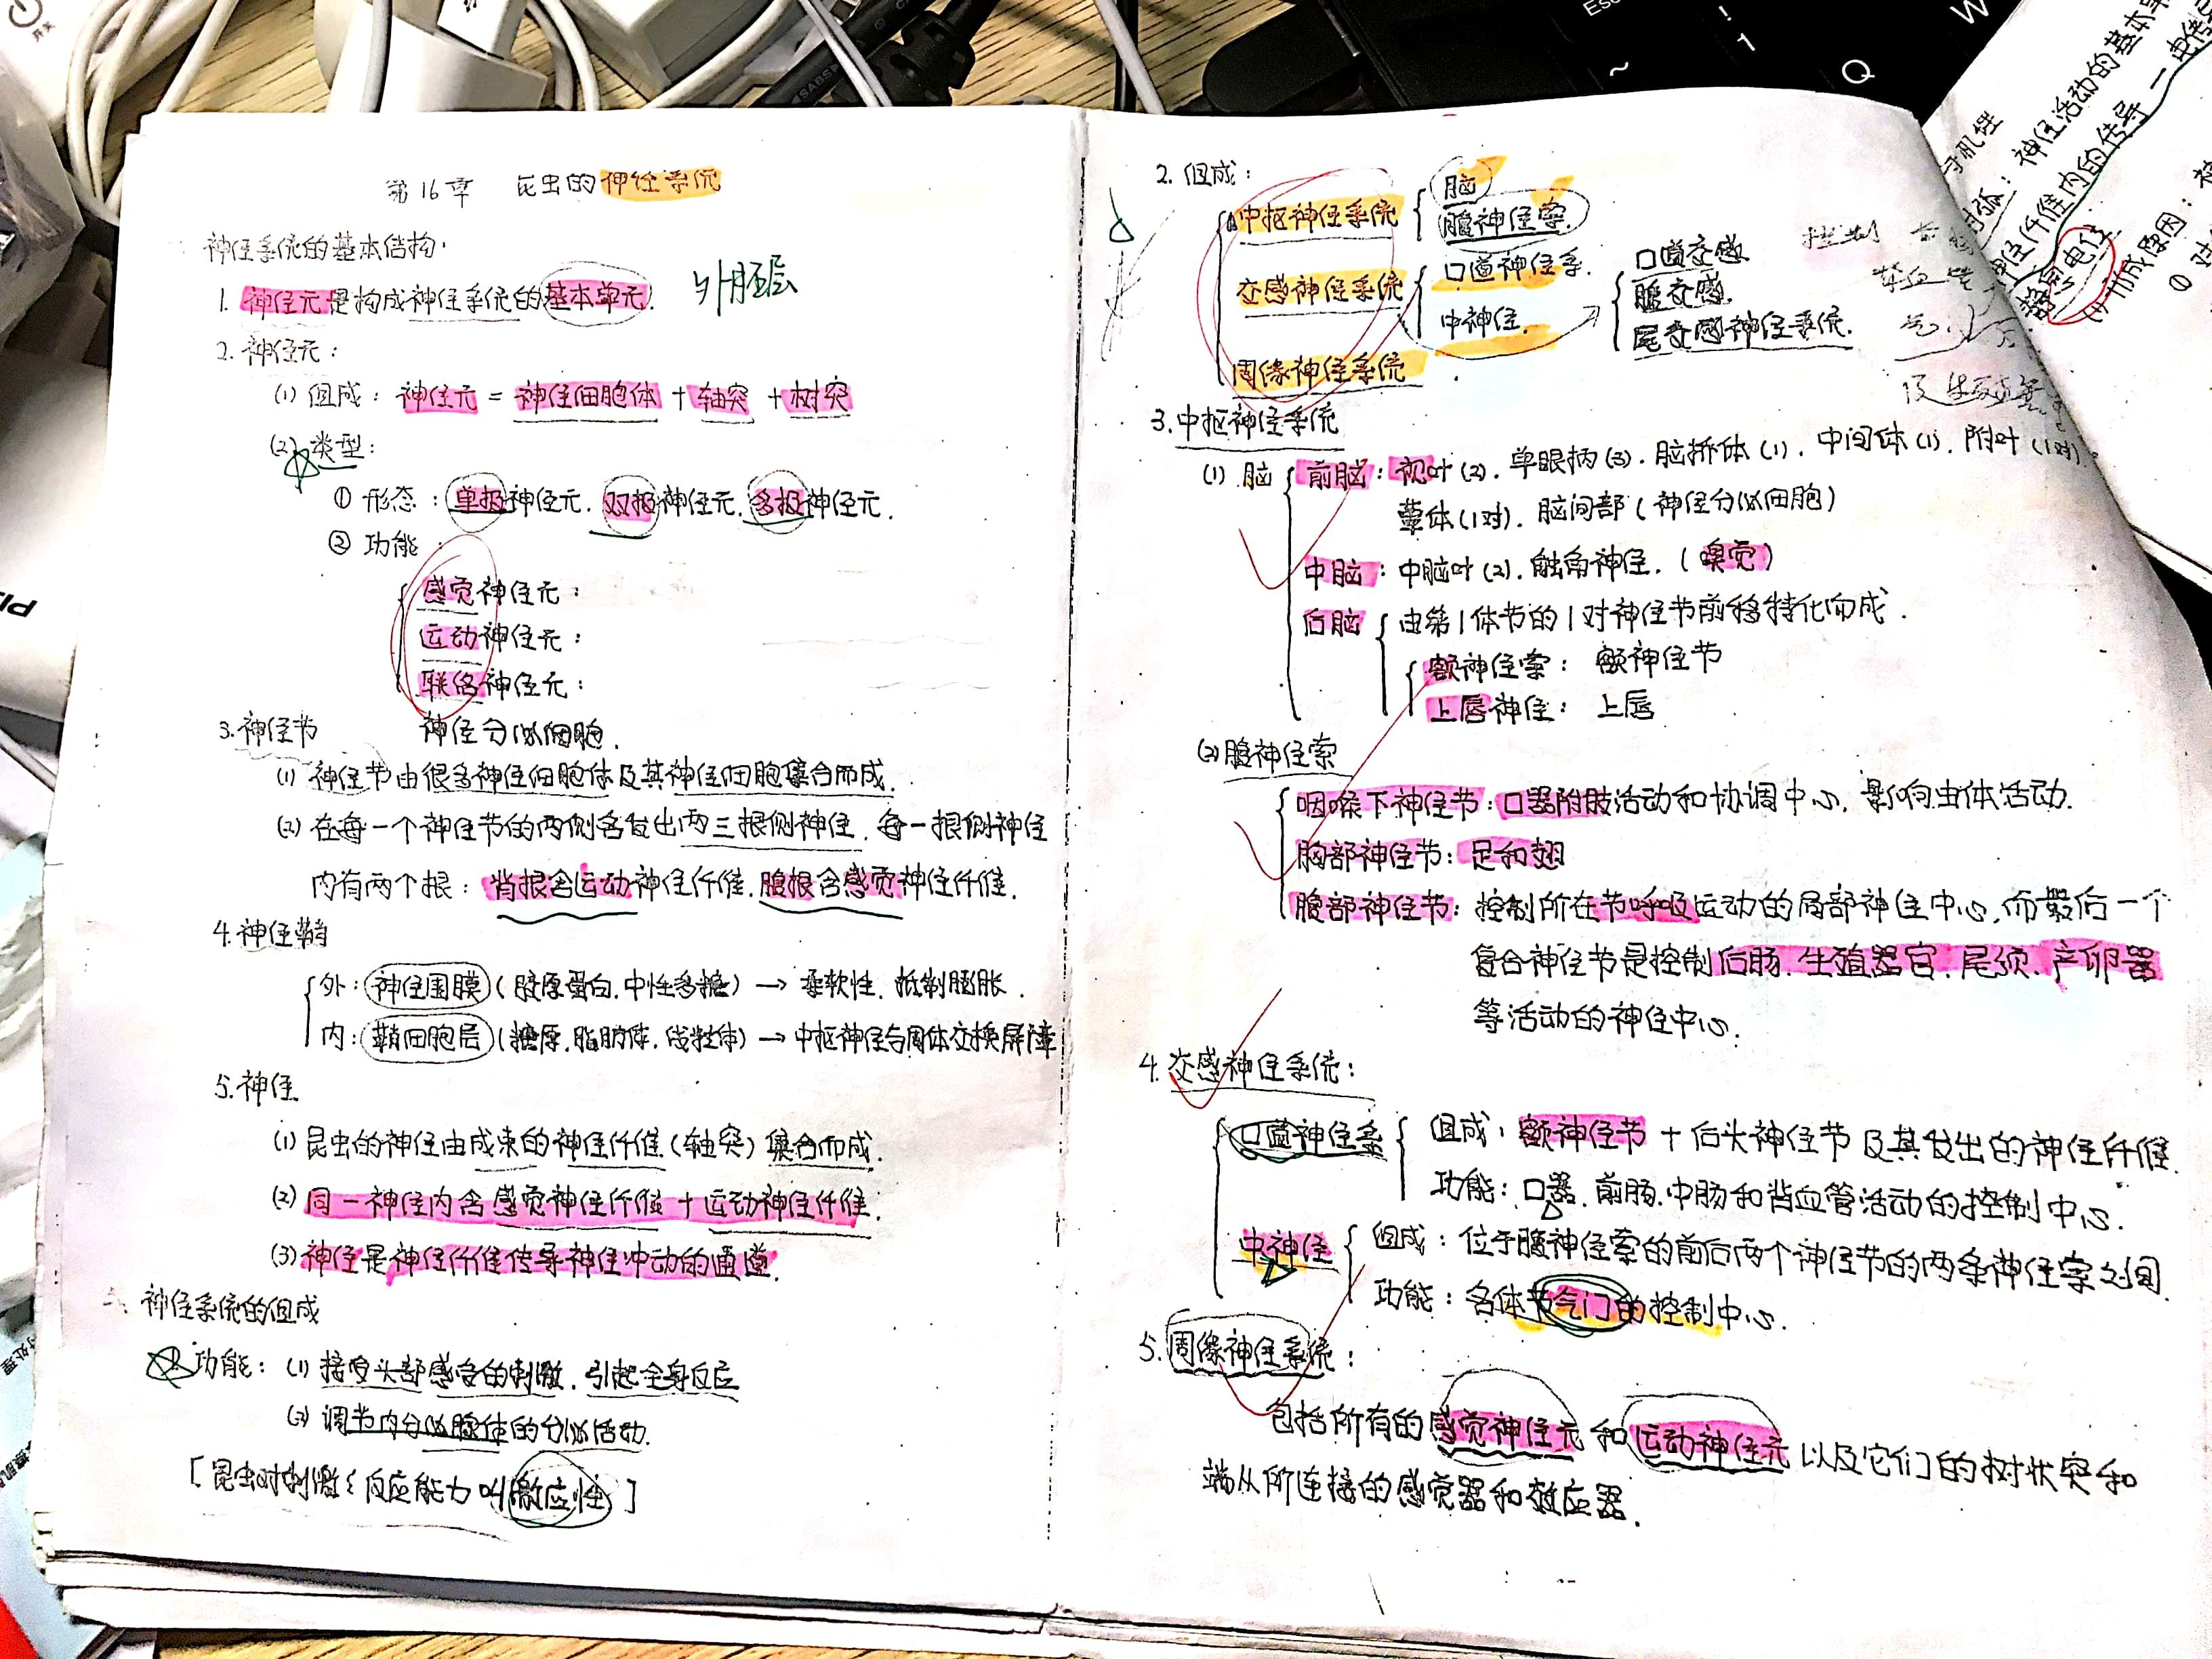 第16章 昆虫的神经系统
神经系统的基本结构:
1. 神经元是构成神经系统的基本单元. 外胚层
2. 神经元:
(1) 组成: 神经元 = 神经细胞体 + 轴突 + 树突
(2) 类型:
① 形态: 单极神经元. 双极神经元. 多极神经元.
② 功能:
感觉神经元:
运动神经元:
联络神经元:
神经分泌细胞.
3. 神经节
(1) 神经节由很多神经细胞体及其神经细胞集合而成.
(2) 在每一个神经节的两侧各发出两三根侧神经, 每一根侧神经
内有两个根: 背根含运动神经纤维, 腹根含感觉神经纤维.
4. 神经鞘
外: 神经围膜 (胶原蛋白. 中性多糖) → 柔软性. 抵制膨胀.
内: 鞘细胞层 (糖原. 脂肪体. 线粒体) → 中枢神经与周体交换屏障
5. 神经
(1) 昆虫的神经由成束的神经纤维 (轴突) 集合而成.
(2) 同一神经内含感觉神经纤维 + 运动神经纤维.
(3) 神经是神经纤维传导神经冲动的通道.
二. 神经系统的组成
功能: (1) 接受头部感受的刺激. 引起全身反应
(2) 调节内分泌腺体的分泌活动.
[昆虫对刺激的反应能力叫激应性]
2. 组成:
中枢神经系统 脑
腹神经索.
交感神经系统 口道神经系.
中神经.
口道交感
腹交感.
尾交感神经系统.
周缘神经系统.
3. 中枢神经系统
(1) 脑
前脑: 视叶(2). 单眼柄(3). 脑桥体(1). 中间体(1). 附叶(1对).
蕈体(1对). 脑间部 (神经分泌细胞)
中脑: 中脑叶(2). 触角神经. (嗅觉)
后脑 由第1体节的1对神经节前移特化而成.
额神经索: 额神经节
上唇神经: 上唇
(2) 腹神经索
咽喉下神经节: 口器附肢活动和协调中心, 影响虫体活动.
胸部神经节: 足和翅
腹部神经节: 控制所在节呼吸运动的局部神经中心, 而最后一个
复合神经节是控制后肠. 生殖器官. 尾须. 产卵器
等活动的神经中心.
4. 交感神经系统:
口道神经系 组成: 额神经节 + 后头神经节及其发出的神经纤维.
功能: 口器. 前肠. 中肠和背血管活动的控制中心.
中神经 组成: 位于腹神经索的前后两个神经节的两条神经索之间.
功能: 各体节气门的控制中心.
5. 周缘神经系统:
包括所有的感觉神经元和运动神经元以及它们的树状突和
端丛所连接的感觉器和效应器.
神经活动的基本单
神经纤维内的传导 — 电传
静息电位
(1) 形成原因:
①
Esc
Q
W